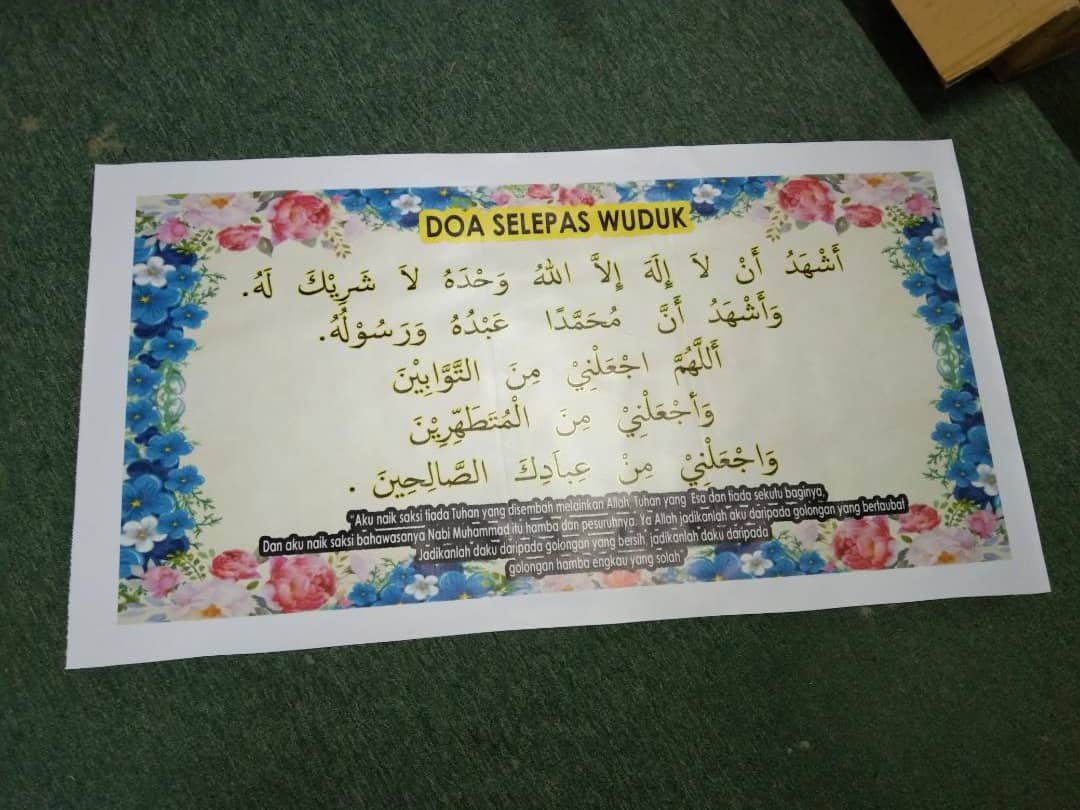 DOA SELEPAS WUDUK
أَشْهَدُ أَنْ لاَ إِلَهَ إِلاَّ اللهُ وَحْدَهُ لاَ شَرِيْكَ لَهُ.
وَأَشْهَدُ أَنَّ مُحَمَّدًا عَبْدُهُ وَرَسُوْلُهُ.
أَللَّهُمَّ اجْعَلْنِيْ مِنَ التَّوَّابِيْنَ
وَأجْعَلْنِيْ مِنَ الْمُتَطَهِّرِيْنَ
وَاجْعَلْنِيْ مِنْ عِبَادِكَ الصَّالِحِينَ .
"Aku naik saksi tiada Tuhan yang disembah melainkan Allah, Tuhan yang Esa dan tiada sekutu baginya,
Dan aku naik saksi bahawasanya Nabi Muhammmad itu hamba dan pesuruhnya. Ya Allah jadikanlah aku daripada golongan yang bertaubat
Jadikanlah daku daripada golongan yang bersih, jadikanlah daku daripada
golongan hamba engkau yang solah"